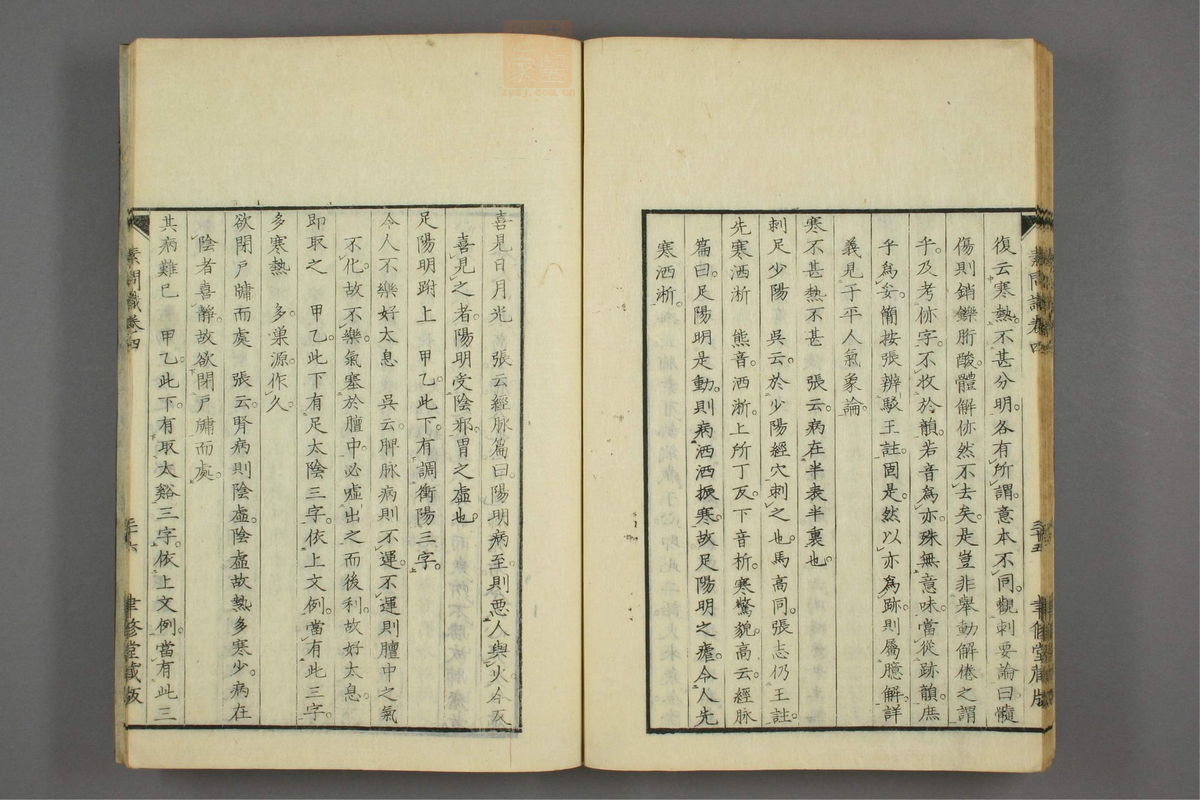 復云寒熱。不甚分明。各有所謂。意本不同。觀刺要論曰髓
傷則銷鑠胻酸。體解㑊然不去矣。是豈非舉動解倦之謂
乎。及考㑊字。不收於韻。若音爲亦。殊無意味。當從跡韻。庶
乎爲妥。簡按張辨駁王註。固是。然以亦爲跡。則屬臆解。詳
義見于平人氣象論。
寒不甚熱不甚 張云。病在半表半裏也。
刺足少陽 吳云。於少陽經穴刺之也。馬高同。張志仍王註。
先寒洒淅 熊音。洒淅。上所丁反。下音析。寒驚貌。高云。經脉
篇曰。足陽明是動。則病洒洒振寒。故足陽明之瘧。令人先
寒洒淅。
素問識卷四 三十五 聿修堂藏版
喜見日月光 張云。經脉篇曰。陽明病至。則惡人與火。今反
喜見之者。陽明受陰邪。胃之虛也。
足陽明跗上 甲乙。此下。有調衝陽三字。
令人不樂好太息 吳云。脾脉病則不運。不運則膻中之氣
不化。故不樂。氣塞於膻中。必噓出之而後利。故好太息。
即取之 甲乙。此下有足太陰三字。依上文例。當有此三字。
多寒熱 多。巢源作久。
欲閉戶牖而處 張云。腎病則陰虛。陰虛故熱多寒少。病在
陰者喜靜。故欲閉戶牖而處。
其病難已 甲乙。此下。有取太谿三字。依上文例。當有此三
素問識卷四 三十六 聿修堂藏版
zysj.com.cn